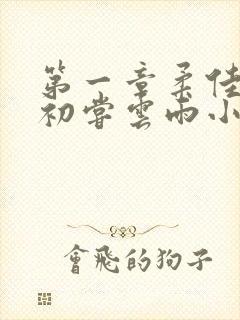 第一章柔佳
初嘗雲雨小
會飛的狗子